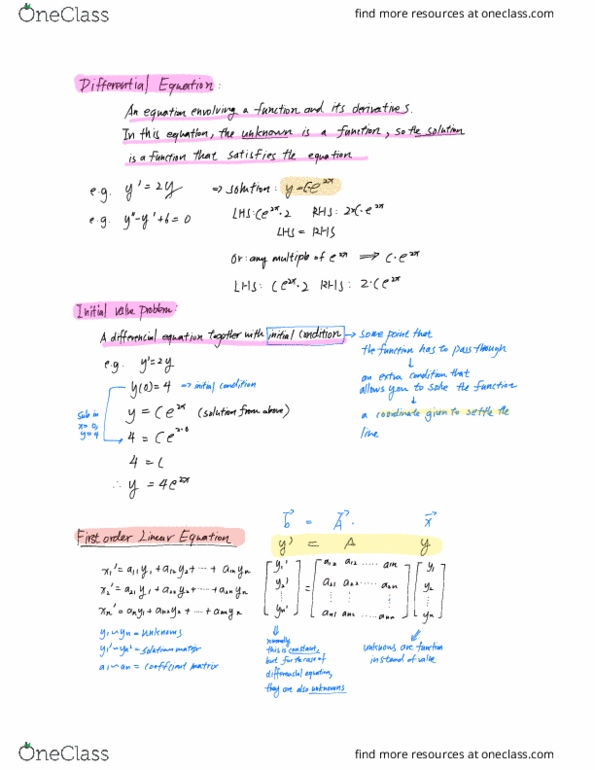 OneClass
find more resources at oneclass.com
Differential Equation:
An equation envolving a function and its derivatives.
In this equation, the unknown is a function, so the solution
is a function that satisfies the equation
e.g. y' = 2y ⇒ solution: y=C·e^2x
e.g. y''-y'+6=0 LHS: Ce^2x·2 RHS: 2x(·e^2x
LHS = RHS
Or: any multiple of e^2x ⇒ C·e^2x
LHS: Ce^2x·2 RHS: 2·Ce^2x
Initial value problem:
A differencial equation together with initial condition → some point that
the function has to pass through
↓
e.g. y'=2y
an extra condition that
allows you to solve the function
↓
y(0)=4 ⇒ initial condition
a coordinate given to settle the
line
Sub in
x=0,
y=4
y = Ce^2x (solution from above)
4 = Ce^2·0
4 = C
∴ y = 4e^2x
First order Linear Equation
b = A · x
y' = A y
x1' = a11y1 + a12y2 + ··· + a1nyn
x2' = a21y1 + a22y2 + ··· + a2nyn
xn' = an1y1 + an2y2 + ··· + annyn
[y1' y2' ⋮ yn'] =
a12 a12 ..... a1n
a21 a22 ..... a2n
an1 an2 ..... ann
[y1 y2 ⋮ yn]
y1~yn = Unknowns
y1'~yn' = solution matrix
a1~an = coefficient matrix
normally
this is constant,
but for the case of
differencial equation,
they are also unknowns
unknows are function
instead of value
OneClass
find more resources at oneclass.com